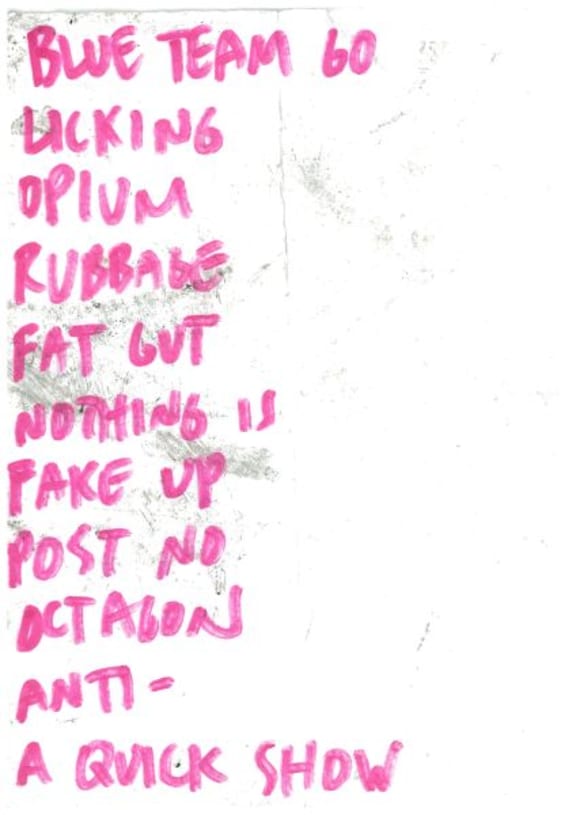 BLUE TEAM GO
LICKING
OPIUM
RUBBAGE
FAT GUT
NOTHING IS
FAKE UP
POST NO
OCTAGON
ANTI-
A QUICK SHOW